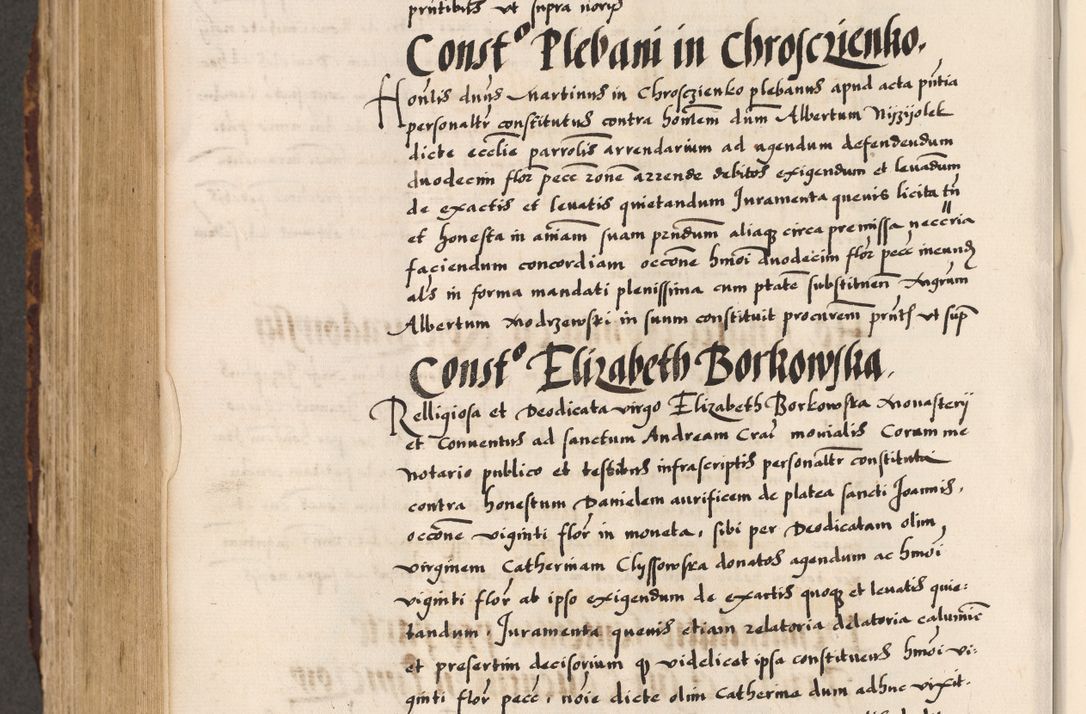 prntibus vt supra noris
Constº Plebani in Chrosczienko.
Honlis dnus Martinus in Chrosczienko plebanus apud acta pntia
personaltr constitutus contra honlem dnm Albertum Nijzijolek
dicte ecclie parrolis arrendarium ad agendum defendendum
duodecim flor pecc rone arrende debitos exigendum et leuadum
de exactis et leuatis quietandum Iuramenta queuis licita tn
et honesta in aniam suam prndum aliaq circa premissa neccria
faciendum concordiam occone hmoi duodecim flor pecc ineund
als in forma mandati plenissima cum ptate substituen Mgrum
Albertum Modrzewski in suum constituit procurem prnts vt sup
Constº Elizabeth Borkowska.
Relligiosa et Deodicata virgo Elizabeth Borkowska Monasterij
et Conuentus ad sanctum Andream Crac monialis Coram me
notario publico et testibus infrascriptis personaltr constituta
contra honestum Danielem aurificem de platea sancti Joannis,
occone viginti flor in moneta, sibi per Deodicatam olim
virginem Catherinam Clyssowska donatos agendum ac hmoi
viginti flor ab ipso exigendum de exactis quoq et leuatis quie-
tandum, Iuramenta queuis etiam relatoria delatoria calumnie
et presertim decisorium q videlicet ipsa constituens hmoi vi-
ginti flor pecc, noie dicte olim Catherine dum adhuc vixit